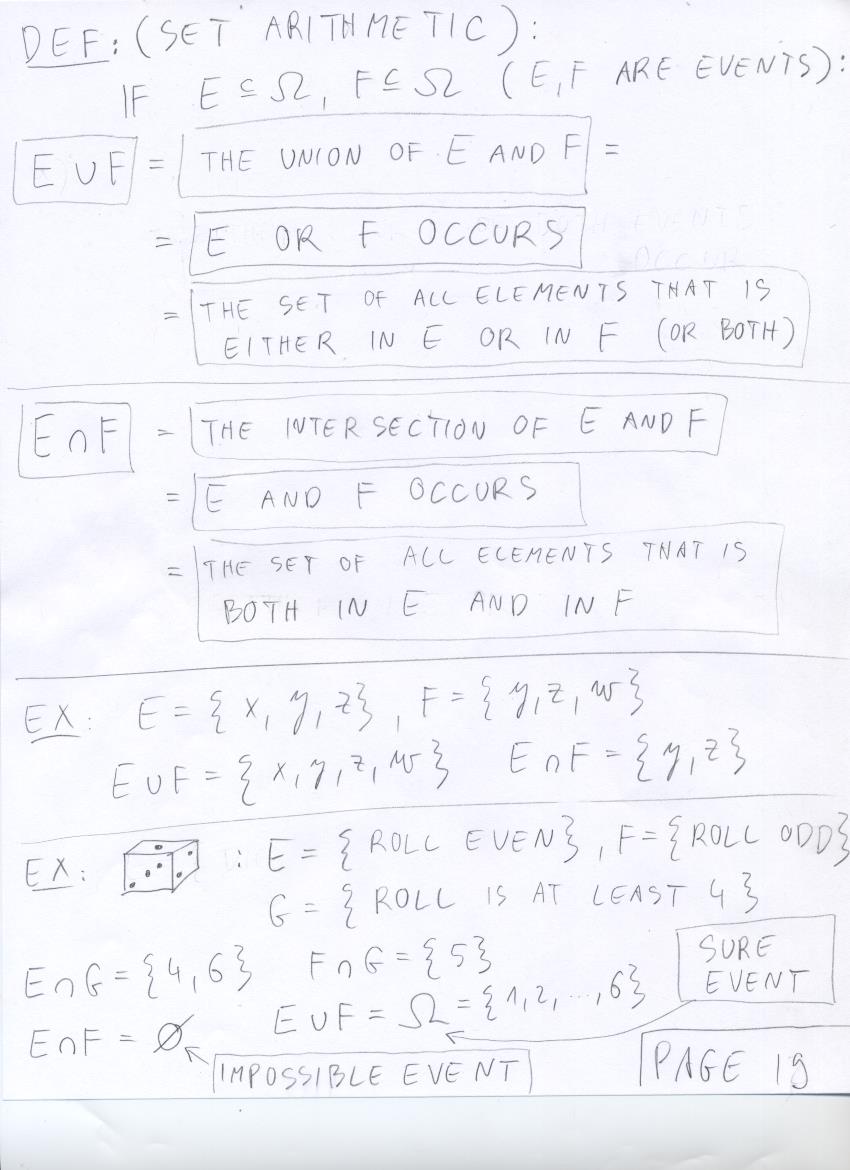 DEF: (SET ARITHMETIC):
IF E ⊆ Ω, F ⊆ Ω (E, F ARE EVENTS):
E ∪ F = THE UNION OF E AND F =
= E OR F OCCURS
= THE SET OF ALL ELEMENTS THAT IS
EITHER IN E OR IN F (OR BOTH)
E ∩ F = THE INTERSECTION OF E AND F
= E AND F OCCURS
= THE SET OF ALL ELEMENTS THAT IS
BOTH IN E AND IN F
EX: E = {x, y, z}, F = {y, z, w}
E ∪ F = {x, y, z, w} E ∩ F = {y, z}
EX: : E = {ROLL EVEN}, F = {ROLL ODD}
G = {ROLL IS AT LEAST 4}
E ∩ G = {4, 6} F ∩ G = {5}
SURE
EVENT
E ∩ F = ∅ E ∪ F = Ω = {1, 2, ..., 6}
IMPOSSIBLE EVENT
PAGE 19